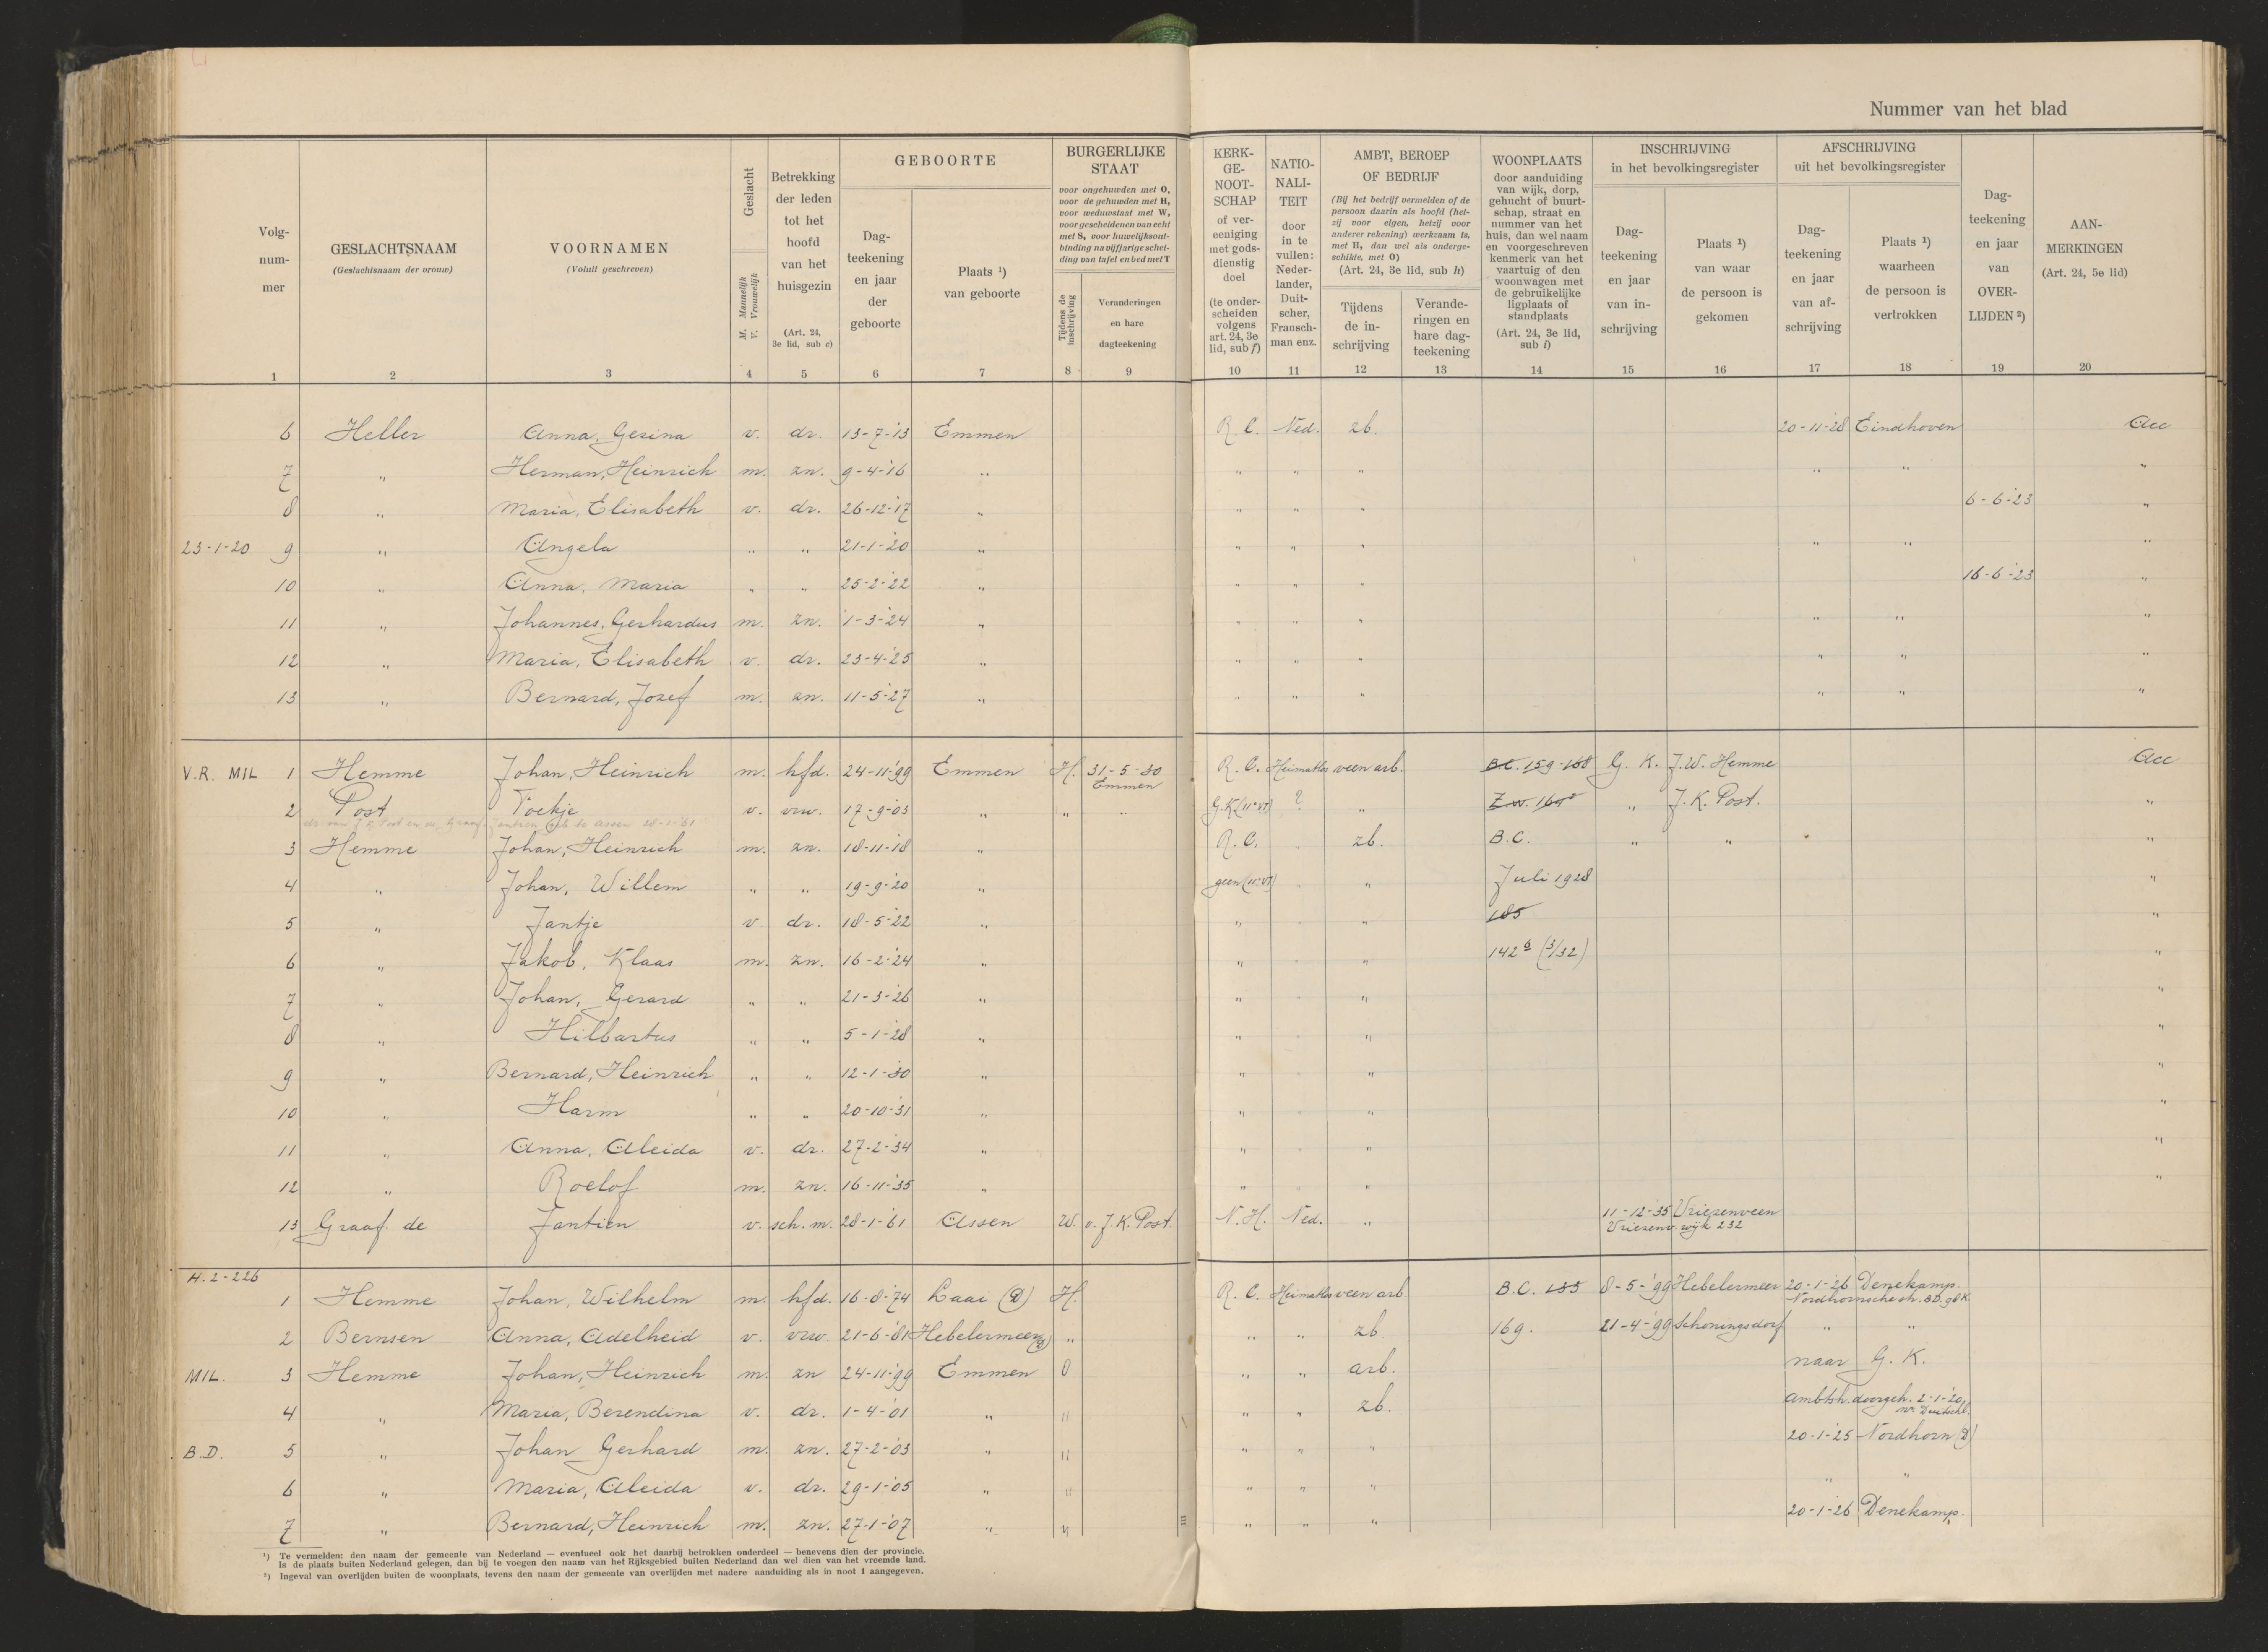 Nummer van het blad
Volg-
num-
mer
GESLACHTSNAAM
(Geslachtsnaam der vrouw)
VOORNAMEN
(Voluit geschreven)
Geslacht
M. Mannelijk
V. Vrouwelijk
Betrekking
der leden
tot het
hoofd
van het
huisgezin
(Art. 24,
3e lid, sub c)
GEBOORTE
Dag-
teekening
en jaar
der
geboorte
Plaats ¹)
van geboorte
BURGERLIJKE
STAAT
voor ongehuwden met O,
voor de gehuwden met H,
voor weduwstaat met W,
voor gescheidenen van echt
met S, voor huwelijksont-
binding na vijfjarige schei-
ding van tafel en bed met T
Tijdens de
inschrijving
Veranderingen
en hare
dagteekening
KERK-
GE-
NOOT-
SCHAP
of ver-
eeniging
met gods-
dienstig
doel
(te onder-
scheiden
volgens
art. 24, 3e
lid, sub f)
NATIO-
NALI-
TEIT
door
in te
vullen:
Neder-
lander,
Duit-
scher,
Fransch-
man enz.
AMBT, BEROEP
OF BEDRIJF
(Bij het bedrijf vermelden of de
persoon daarin als hoofd (het-
zij voor eigen, hetzij voor
anderer rekening) werkzaam is,
met H, dan wel als onderge-
schikte, met O)
(Art. 24, 3e lid, sub h)
Tijdens
de in-
schrijving
Verande-
ringen en
hare dag-
teekening
WOONPLAATS
door aanduiding
van wijk, dorp,
gehucht of buurt-
schap, straat en
nummer van het
huis, dan wel naam
en voorgeschreven
kenmerk van het
vaartuig of den
woonwagen met
de gebruikelijke
ligplaats of
standplaats
(Art. 24, 3e lid,
sub i)
INSCHRIJVING
in het bevolkingsregister
Dag-
teekening
en jaar
van in-
schrijving
Plaats ¹)
van waar
de persoon is
gekomen
AFSCHRIJVING
uit het bevolkingsregister
Dag-
teekening
en jaar
van af-
schrijving
Plaats ¹)
waarheen
de persoon is
vertrokken
Dag-
teekening
en jaar
van
OVER-
LIJDEN ²)
AAN-
MERKINGEN
(Art. 24, 5e lid)
1 2 3 4 5 6 7 8 9 10 11 12 13 14 15 16 17 18 19 20
6 Heller Anna, Gesina v. dr. 13-7-'13 Emmen R.C. Ned. zb. 20-11-'28 Eindhoven Acc
7 „ Herman, Heinrich m. zn. 9-4-'16 „ „ „ „ „ „ „
8 „ Maria, Elisabeth v. dr. 26-12-'17 „ „ „ „ 6-6-'23 „
23-1-20 9 „ Angela „ „ 21-1-'20 „ „ „ „ „ „ „
10 „ Anna, Maria „ „ 25-2-'22 „ „ „ „ 16-6-'23 „
11 „ Johannes, Gerhardus m. zn. 1-3-'24 „ „ „ „ „ „ „
12 „ Maria, Elisabeth v. dr. 23-4-'25 „ „ „ „ „ „ „
13 „ Bernard, Jozef m. zn. 11-5-'27 „ „ „ „ „ „ „
V.R. MIL 1 Hemme Johan, Heinrich m. hfd. 24-11-'99 Emmen H. 31-5-30 R.C. Heimatlos veen arb. B.C. 159-168 G.K. J.W. Hemme Acc
Emmen
2 Post Foekje v. vrw. 17-9-'03 „ „ „ G.K. (11-VI) ? „ „ J.K. Post. „
3 Hemme Johan, Heinrich m. zn. 18-11-18 „ R.C. zb. B.C. „ „ „
4 „ Johan, Willem „ „ 19-9-'20 „ geen (11-VI) „ Juli 1928 „
5 „ Jantje v. dr. 18-5-'22 „ „ „ 185 „
6 „ Jakob, Klaas m. zn. 16-2-'24 „ „ „ 142 b (3/32) „
7 „ Johan, Gerard „ „ 21-3-'26 „ „ „ „
8 „ Hilbartus „ „ 5-1-'28 „ „ „ „
9 „ Bernard, Heinrich „ „ 12-1-'30 „ „ „ „
10 „ Harm „ „ 20-10-'31 „ „ „ „
11 „ Anna, Aleida v. dr. 27-2-'34 „ „ „ „
12 „ Roelof m. zn. 16-11-'35 „ „ „ „
13 Graaf de Jantien v. sch. m. 28-1-'61 Assen W. v. J.K. Post N.H. Ned. „ 11-12-'35 Vriezenveen
Vriezenv. wijk 232
H.2-226
1 Hemme Johan, Wilhelm m. hfd. 16-8-'74 Laai (D) H. R.C. Heimatlos veen arb. B.C. 185 8-5-'99 Hebelermeer 20-1-'26 Denekamp.
2 Bernsen Anna, Adelheid v. vrw. 21-6-'81 Hebelermeer (D) „ „ „ zb. 169. 21-4-'99 Schoningsdorf „ „
MIL. 3 Hemme Johan, Heinrich m. zn 24-11-'99 Emmen O „ „ arb. naar G.K.
4 „ Maria, Berendina v. dr. 1-4-'01 „ „ „ „ zb. ambtsh. doorgeh. 2-1-'20
nr. Duitschl.
B.D. 5 „ Johan Gerhard m. zn. 27-2-'03 „ „ „ „ „ 20-1-'25 Nordhorn (D)
6 „ Maria, Aleida v. dr. 29-1-'05 „ „ „ „ „ „ „
7 „ Bernard, Heinrich m. zn. 27-1-'07 „ „ „ „ „ 20-1-'26 Denekamp.
¹) Te vermelden: den naam der gemeente van Nederland — eventueel ook het daarbij betrokken onderdeel — benevens dien der provincie.
Is de plaats buiten Nederland gelegen, dan bij te voegen den naam van het Rijksgebied buiten Nederland dan wel dien van het vreemde land.
²) Ingeval van overlijden buiten de woonplaats, tevens den naam der gemeente van overlijden met nadere aanduiding als in noot 1 aangegeven.